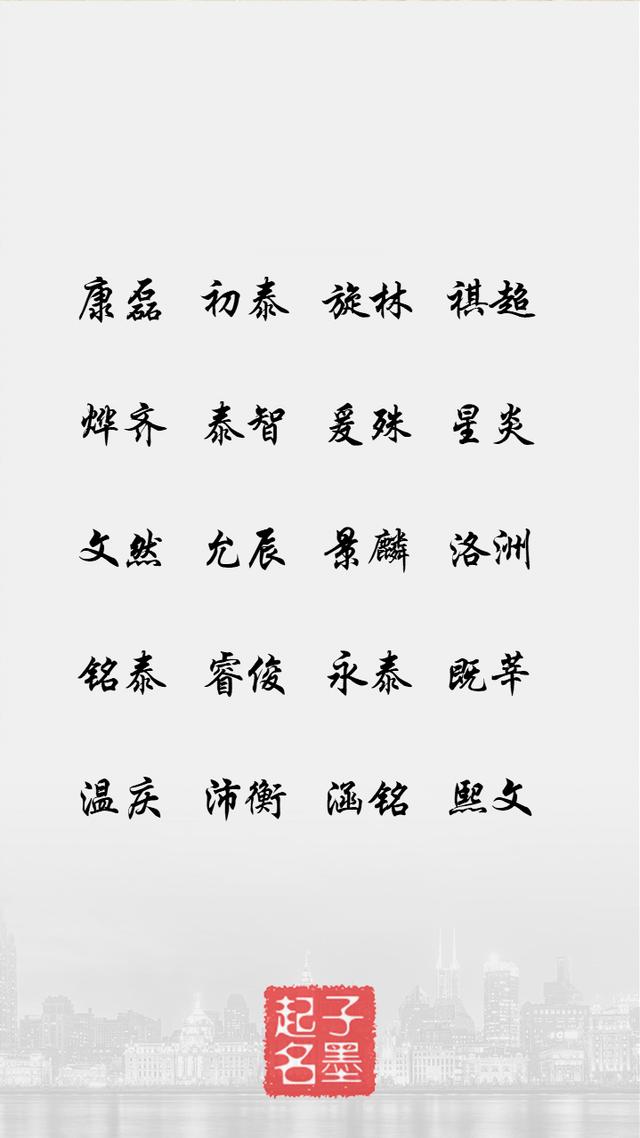 康磊 初泰 旋林 祺超
烨齐 泰智 爰殊 星炎
文然 允辰 景麟 洛洲
铭泰 睿俊 永泰 既莘
温庆 沛衡 涵铭 熙文
子墨
起名